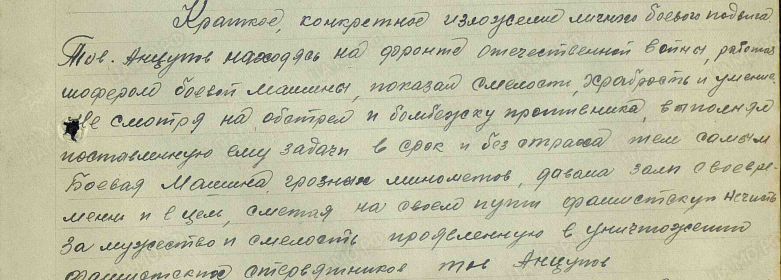 Краткое, конкретное изложение личного боевого подвига
Тов. Анцупов находясь на фронте отечественной войны, работая
шофером боевой машины, показал смелость, храбрость и умение.
Не смотря на обстрел и бомбежку противника, выполнял
поставленную ему задачи в срок и без страха тем самым
Боевая Машина грозных минометов, давала залп своевре-
менно и в цель, сметая на своем пути фашистскую нечисть
За мужество и смелость проявленную в уничтожении
фашистских стервятников тов Анцупов